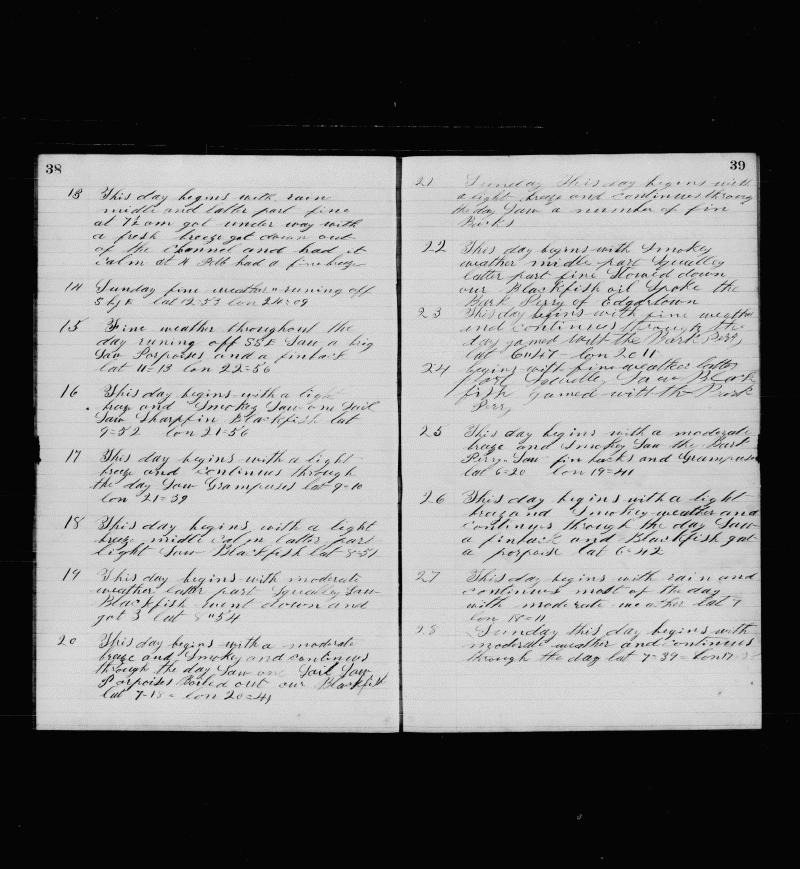 38
13 This day begins with rain
midle and latter part fine
at 7½ am got under way with
a fresh breeze got down out
of the channel and had it
calm at 4 P.M. had a fine breeze
14 Sunday fine weather runing off
S by E lat 12=53 lon 24=09
15 Fine weather throughout the
day runing off SSE Saw a brig
Saw Porpoises and a finback
lat 11=13 lon 22=56
16 This day begins with a light
braze and Smokey Saw one Sail
Saw Sharpfin Blackfish lat
9=52 lon 21=56
17 This day begins with a light
braze and continues through
the day Saw Grampuses lat 9=10
lon 21=39
18 This day begins with a light
braze middle calm latter part
light Saw Blackfish lat 8=51
19 This day begins with moderate
weather latter part Squalley Saw
Blackfish went down and
got 3 lat 8"54
20 This day begins with a moderate
braze and Smokey and continues
through the day Saw one Sail Saw
Porpoises Boiled out our Blackfish
lat 7-18= lon 20=41
39
21 Sunday This day begins with
a light braze and continues through
the day Saw a number of fin
Backs
22 This day begins with Smokey
weather middle part Squalley
latter part fine Stowed down
our Blackfish oil Spoke the
Bark Perry of Edgartown
23 This day begins with fine weather
and continues through the
day gamed with the Bark Perry
lat 6"47- lon 20 11
24 begins with fine weather latter
part Squalley Saw Black
fish gamed with the Bark
Perry
25 This day begins with a moderate
braze and Smokey Saw the Bark
Perry Saw finbacks and Grampuses
lat 6=20 lon 19=41
26 This day begins with a light
braze and Smokey weather and
continues through the day Saw
a finback and Blackfish got
a porpoise lat 6-42
27 This day begins with rain and
continues most of the day
with moderate weather lat 7
lon 18=11
28 Sunday this day begins with
moderate weather and continues
through the day lat 7=39= lon 17